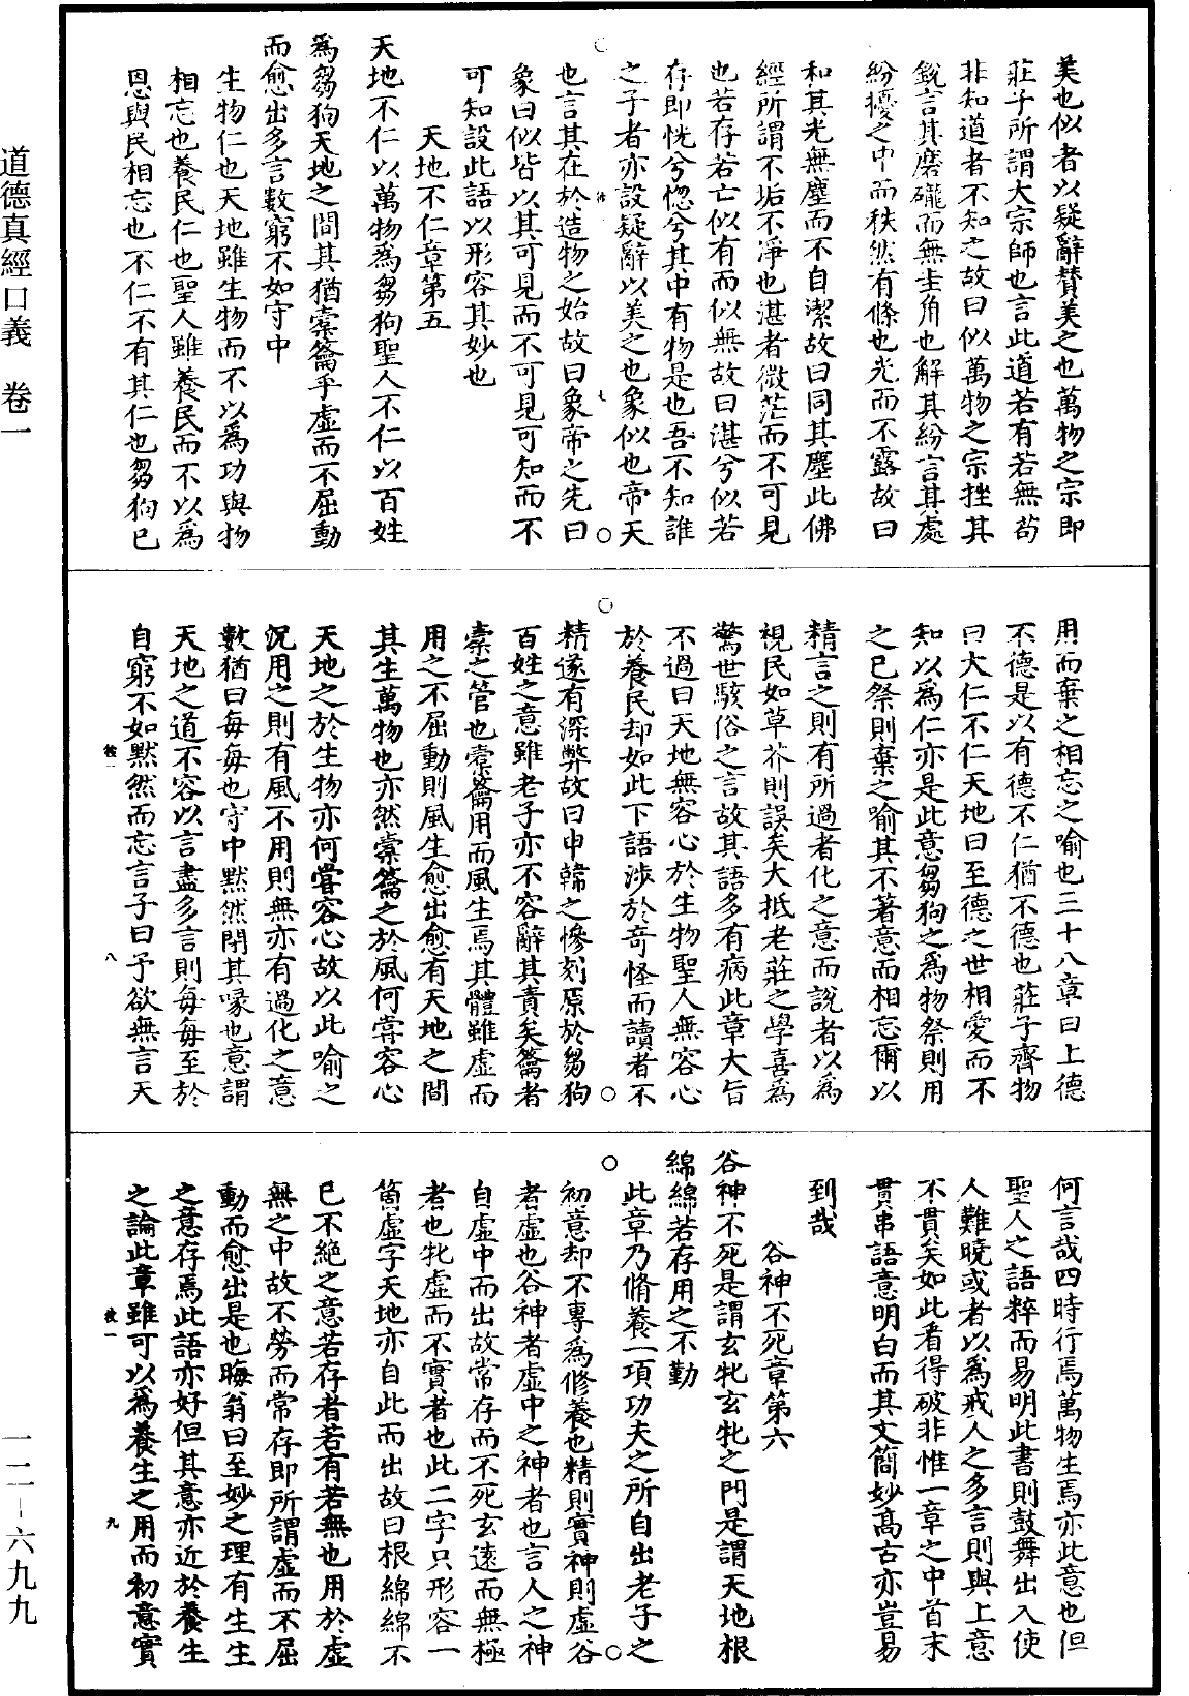 美也似者以疑辭贊美之也萬物之宗即
莊子所謂大宗師也言此道若有若無苟
非知道者不知之故曰似萬物之宗挫其
銳言其磨礲而無圭角也解其紛言其處
紛擾之中而秩然有條也光而不露故曰
和其光無塵而不自潔故曰同其塵此佛
經所謂不垢不淨也湛者微茫而不可見
也若存若亡似有而似無故曰湛兮似若
存即恍兮惚兮其中有物是也吾不知誰
之子者亦設疑辭以美之也象似也帝天
也言其在於造物之始故曰象帝之先曰
象曰似皆以其可見而不可見可知而不
可知設此語以形容其妙也
天地不仁章第五
天地不仁以萬物為芻狗聖人不仁以百姓
為芻狗天地之間其猶橐籥乎虛而不屈動
而愈出多言數窮不如守中
生物仁也天地雖生物而不以為功與物
相忘也養民仁也聖人雖養民而不以為
恩與民相忘也不仁不有其仁也芻狗已
用而棄之相忘之喻也三十八章曰上德
不德是以有德不仁猶不德也莊子齊物
曰大仁不仁天地曰至德之世相愛而不
知以為仁亦是此意芻狗之為物祭則用
之已祭則棄之喻其不著意而相忘爾以
精言之則有所過者化之意而說者以為
視民如草芥則誤矣大抵老莊之學喜為
驚世駭俗之言故其語多有病此章大旨
不過曰天地無容心於生物聖人無容心
於養民却如此下語涉於奇怪而讀者不
精遂有深弊故曰申韓之慘刻原於芻狗
百姓之意雖老子亦不容辭其責矣籥者
橐之管也橐籥用而風生焉其體雖虛而
用之不屈動則風生愈出愈有天地之間
其生萬物也亦然橐籥之於風何嘗容心
天地之於生物亦何嘗容心故以此喻之
況用之則有風不用則無亦有過化之意
數猶曰每每也守中默然閉其喙也意謂
天地之道不容以言盡多言則每每至於
自窮不如默然而忘言子曰予欲無言天
何言哉四時行焉萬物生焉亦此意也但
聖人之語粹而易明此書則鼓舞出入使
人難曉或者以為戒人之多言則與上意
不貫矣如此看得破非惟一章之中首末
貫串語意明白而其文簡妙高古亦豈易
到哉
谷神不死章第六
谷神不死是謂玄牝玄牝之門是謂天地根
綿綿若存用之不勤
此章乃脩養一項功夫之所自出老子之
初意却不專為修養也精則實神則虛谷
者虛也谷神者虛中之神者也言人之神
自虛中而出故常存而不死玄遠而無極
者也牝虛而不實者也此二字只形容一
箇虛字天地亦自此而出故曰根綿綿不
已不絕之意若存者若有若無也用於虛
無之中故不勞而常存即所謂虛而不屈
動而愈出是也晦翁曰至妙之理有生生
之意存焉此語亦好但其意亦近於養生
之論此章雖可以為養生之用而初意實
道德真經口義　卷一
一二－六九九